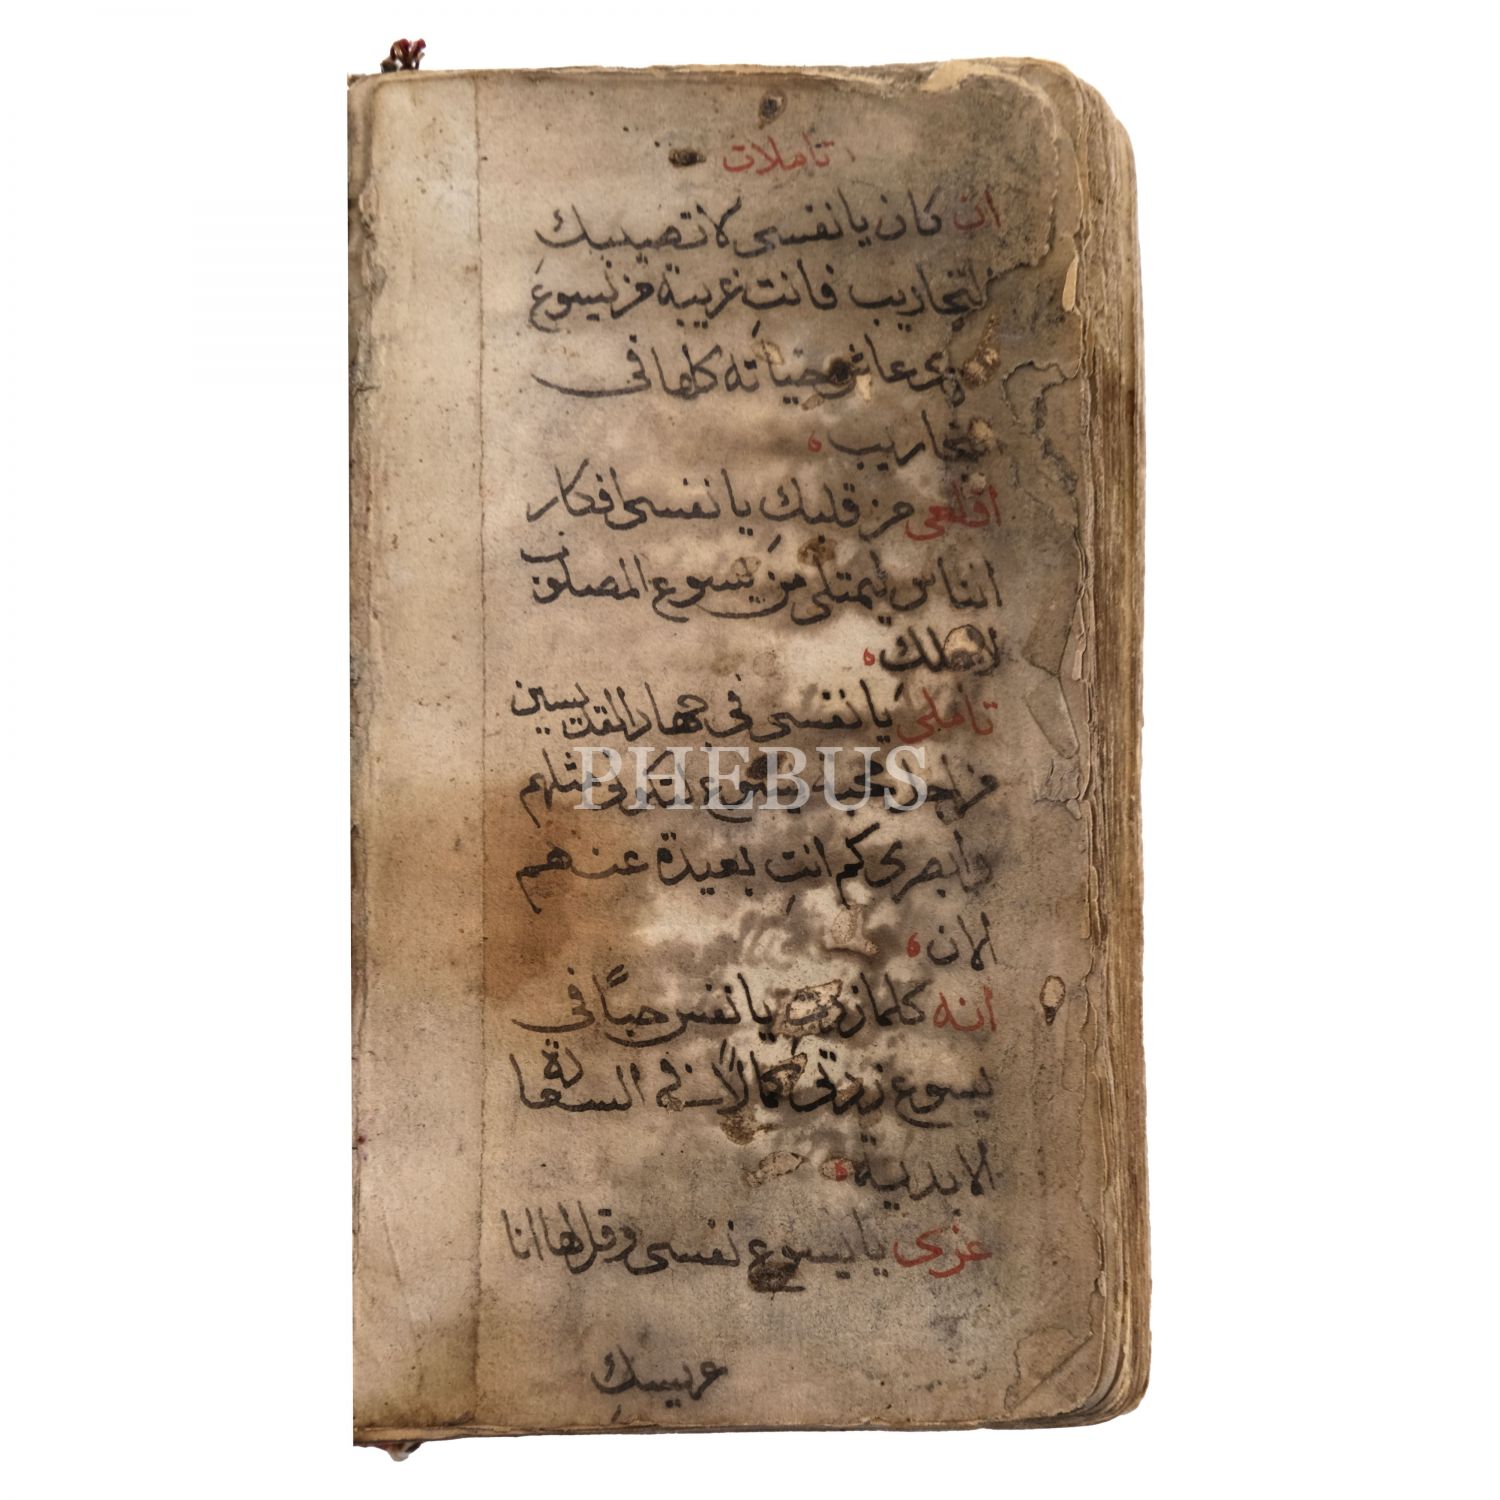 تاملات
ان كان يا نفسى لا تصيبك
التجاريب فانتِ غريبة من يسوع
عاش حياته كلها فى
التجاريب
اقلعى من قلبكِ يا نفسى افكار
الناس ليمتلى من يسوع المصلوب
لاجلكِ
تاملى يا نفسى فى جهاد القديسين
من اجل محبة يسوع لتكونى مثلهم
وابصرى كم انتِ بعيدة عنهم
الان
انه كلما زدتِ يا نفس حبًا فى
يسوع زدتى كمالاً فى السعادة
الابدية
عزى يا يسوع نفسى وقل لها انا
عريسكِ
PHEBUS